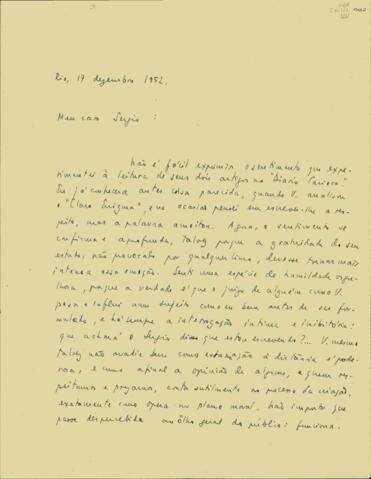 Rio, 17 dezembro 1952.
Meu caro Sergio:
Não é fácil exprimir o sentimento que expe-
rimentei à leitura de seus dois artigos no "Diario Carioca".
Eu já conhecera antes coisa parecida, quando V. analisou
o "Claro Enigma", e na ocasião pensei em escrever-lhe a res-
peito, mas a palavra
Agora, o sentimento se
confirma e aprofunda, talvez porque a gratuidade do seu
estudo, não provocado por qualquer livro, devesse tornar mais
intensa essa emoção. Senti uma espécie de humildade orgu-
lhosa, porque a verdade é que o juízo de alguém como V.
passa a influir num sujeito como eu bem antes de ser for-
mulado, e há sempre a interrogação íntima e inibitória:
que achará o Sergio disso que estou escrevendo?... V. mesmo
talvez não avalie bem como essa
à distância é pode-
rosa, e como afinal a opinião de alguns, a quem res-
peitamos e prezamos, conta sutilmente no processo da criação,
exatamente como opera no plano moral. Não importa que
passe despercebida ao olho geral do público: funciona.